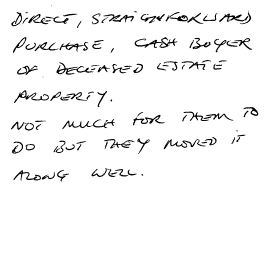 DIRECT, STRAIGHTFORWARD
PURCHASE, CASH BUYER
OF DECEASED ESTATE
PROPERTY.
NOT MUCH FOR THEM TO
DO BUT THEY MOVED IT
ALONG WELL.